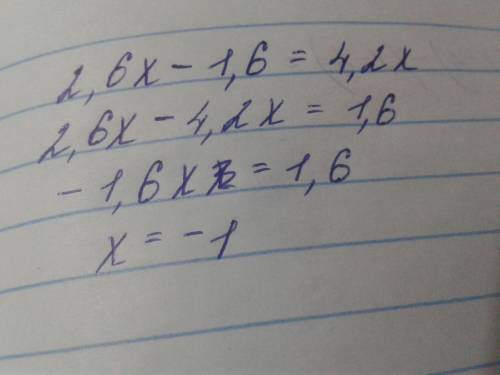 2,6x - 1,6 = 4,2x
2,6x - 4,2x = 1,6
- 1,6x = 1,6
x = -1